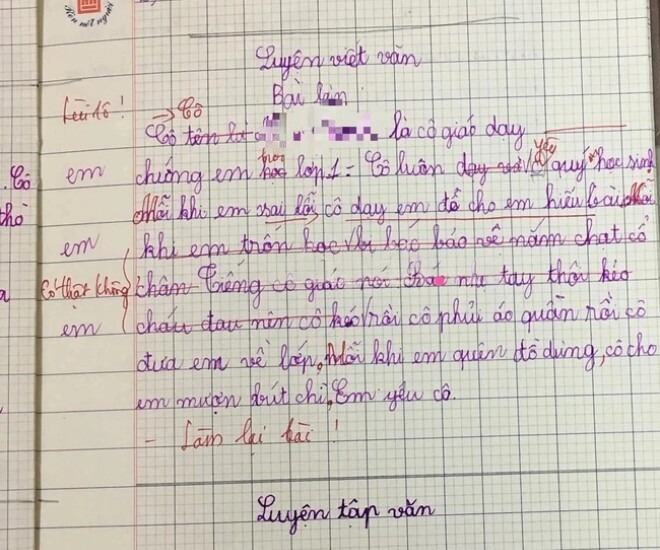 Rèn nét người
Luyện viết văn
Bài làm
Lùi 1ô !
→ Cô
Cô tên là là cô giáo dạy
Cô em chúng em học trong lớp 1 = Cô luôn dạy yêu quý học sinh
thò Mỗi khi em sai lỗi, cô dạy em để cho em hiểu bài. Mỗi
em khi em trốn học bác báo về nắm chat cổ
Có thật không châm Tiếng cô giáo nói như tay thôi kéo
em cháu đau nên cô kéo rồi cô phủi áo quần rồi cô
đưa em về lớp, Mỗi khi em quên đồ dùng, cô cho
em mượn bút chì, Em yêu cô.
- Làm lại bài !
Luyện tập văn